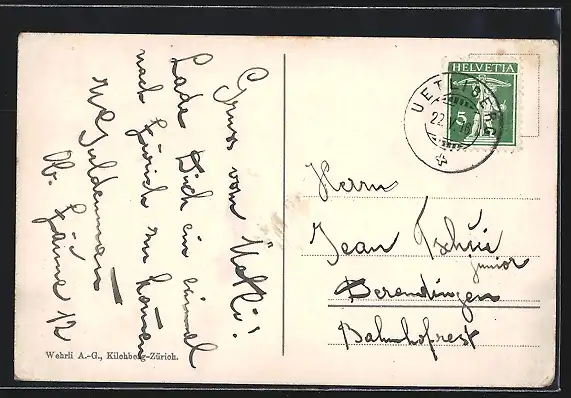 Gruss vom Uetli!
Lade Dich ein einmal
nach Zürich zu kommen
Ob. Zäune 12
HELVETIA
5
UETLIBERG
22.
Herrn
Jean Tschui
junior
Derendingen
Bahnhofrest
Wehrli A.-G., Kilchberg-Zürich.